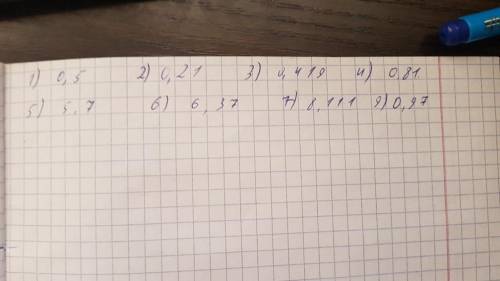 1) 0,5 2) 0,21 3) 0,419 4) 0,81
5) 5,7 6) 6,37 7) 8,111 9) 0,97